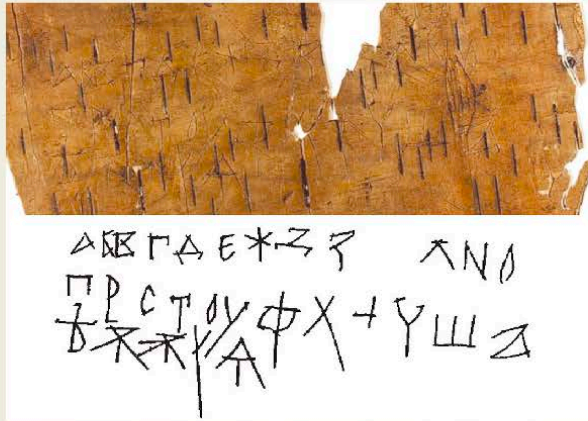 А Б В Г Д Е Ж Ꙁ З Л N О
П Р С Т ОУ Ф Х + Ч Ш
Ѣ Ѫ Ѫ Ѵ Ѧ